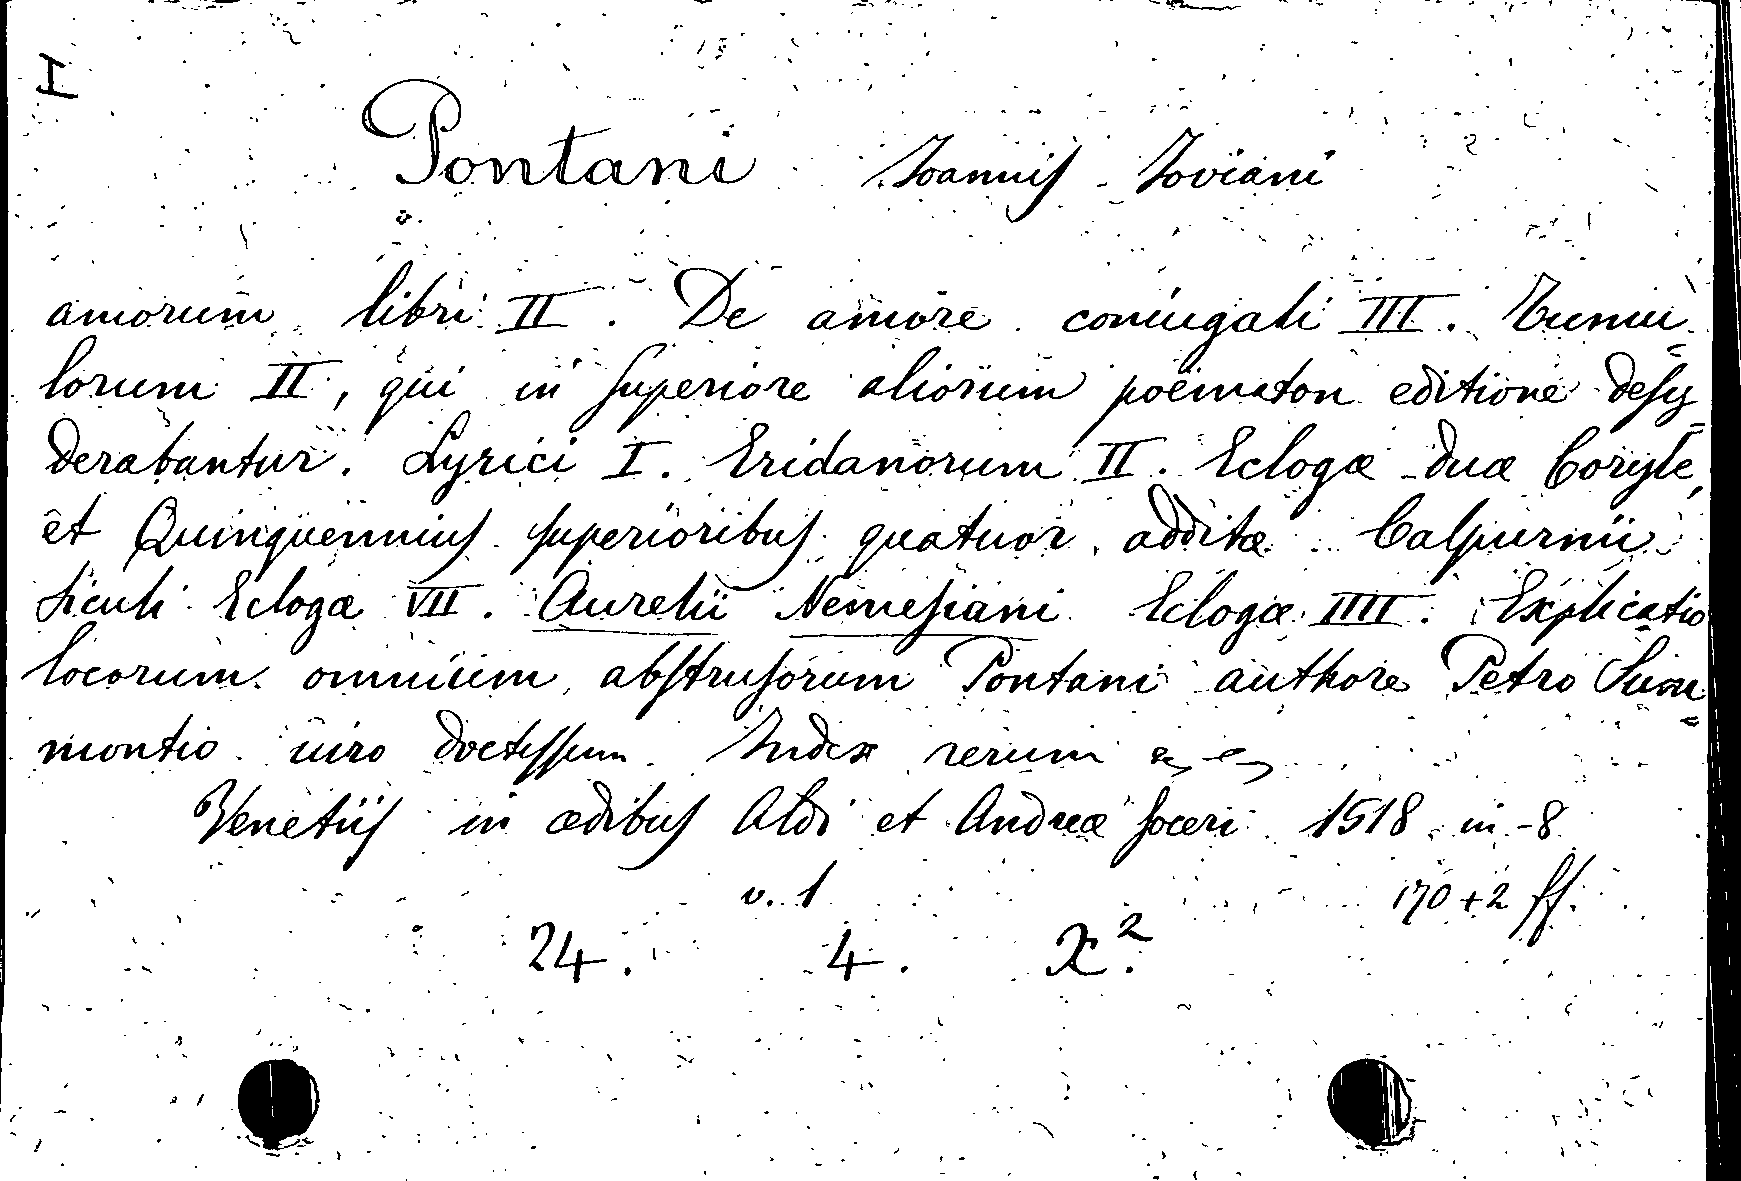 I
Pontani Ioannis Ioviani
amorum libri II. De amore coniugali III. Tumu
lorum II, qui in superiore aliorum poëmaton editione desy
derabantur. Lyrici I. Eridanorum II. Eclogæ duæ Coryle,
et Quinquennius superioribus quatuor additæ. Calpurnii
siculi Eclogæ VII. Aurelii Nemesiani Eclogæ IIII. Explicatio
locorum omnium abstrusorum Pontani authore Petro Sum
montio uiro doctissim. Index rerum
Venetiis in ædibus Aldi et Andreæ soceri 1518 in-8
v. 1 170+2 ff.
24. 4. X².